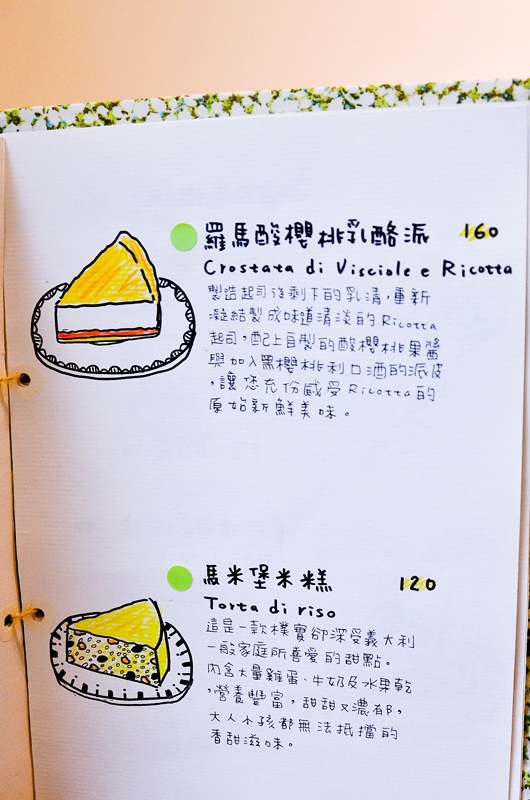 羅馬酸櫻桃乳酪派 160
Crostata di Visciole e Ricotta
製造起司後剩下的乳清,重新
凝結製成味道清淡的Ricotta
起司,配上自製的酸櫻桃果醬
與加入黑櫻桃利口酒的派皮
,讓您充份感受Ricotta的
原始新鮮美味。
馬米堡米糕 120
Torta di riso
這是一款樸實卻深受義大利
一般家庭所喜愛的甜點。
內含大量雞蛋、牛奶及水果乾
,營養豐富,甜甜又濃郁,
大人小孩都無法抵擋的
香甜滋味。